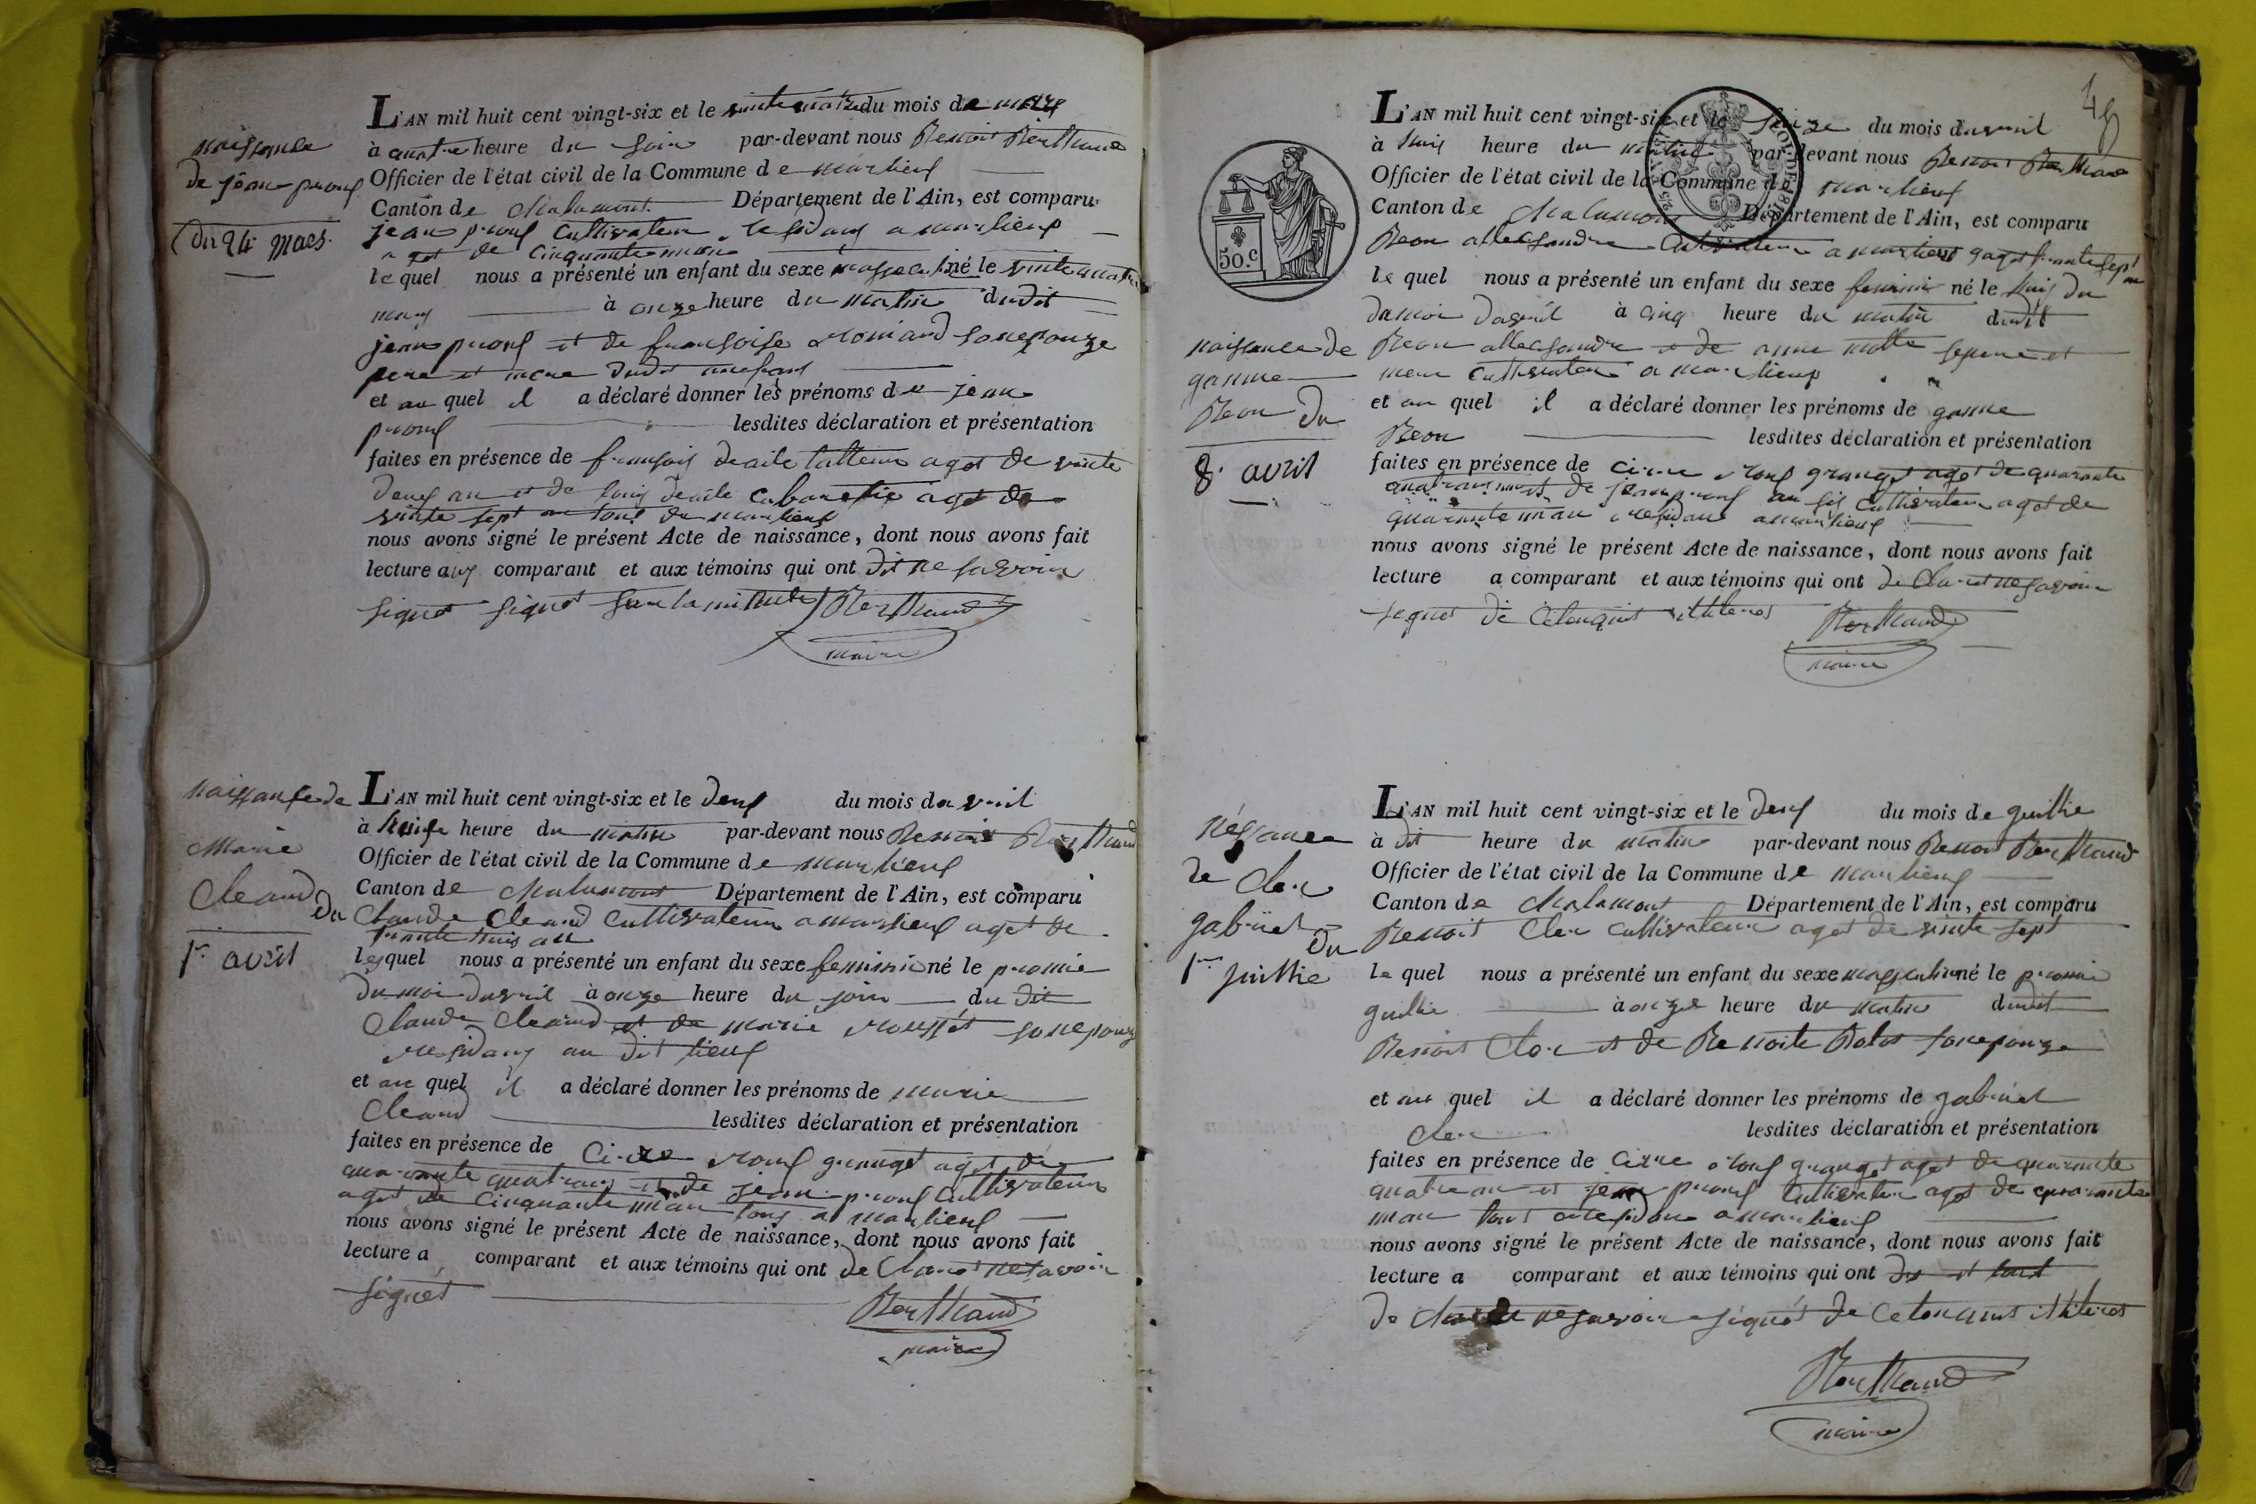 naissance
de jean proux
du 24 mars
L'AN mil huit cent vingt-six et le vinte du mois de mars
à quatre heure du soir par-devant nous Benoit Berthaud
Officier de l'état civil de la Commune de marlieux
Canton de Chalamont Département de l'Ain, est comparu
jean proux cultivateur residans a marlieux
aget de cinquante
le quel nous a présenté un enfant du sexe né le vinte quatre
mars à onze heure du matin dudit
jean proux et de fransoise son epouze
pere et mere dudit
et au quel il a déclaré donner les prénoms de jean
proux lesdites déclaration et présentation
faites en présence de fransois agot de vinte
deux an et de agot de
vinte sept an tous de marlieux
nous avons signé le présent Acte de naissance, dont nous avons fait
lecture aux comparant et aux témoins qui ont dit ne savoir
signet signet sur la minute Berthaud
maire
naissanse de
Marie
Cleaud
du
1er avril
L'AN mil huit cent vingt-six et le deux du mois davril
à heure du matin par-devant nous Benoit Berthaud
Officier de l'état civil de la Commune de marlieux
Canton de Chalamont Département de l'Ain, est comparu
Claude Cleaud cultivateur a marlieux aget de
trante huis an
lequel nous a présenté un enfant du sexe feminin né le promie
du moi davril à onze heure du soir du dit
Claude Cleaud et de marie son epouz
residans au dit lieux
et au quel il a déclaré donner les prénoms de marie
Cleaud lesdites déclaration et présentation
faites en présence de roux granget aget de
quarante quatre an et de jean proux cultivateur
aget de cinquante tous a marlieux
nous avons signé le présent Acte de naissance, dont nous avons fait
lecture a comparant et aux témoins qui ont de Claret ne savoir
signet
Berthaud
maire
48
50.c
naissance de
ganne
Beon du
8. avril
L'AN mil huit cent vingt-six et le du mois davril
à huis heure du matin par-devant nous Benoit Berthaud
Officier de l'état civil de la Commune de marlieux
Canton de Chalamont Département de l'Ain, est comparu
Beon allecsandre cultivateur a marlieux aget trante sept
le quel nous a présenté un enfant du sexe feminin né le huis du
du moi davril à cinq heure du matin dudit
Beon allecsandre et de anne se pere et
mere cultivateur a marlieux
et au quel il a déclaré donner les prénoms de ganne
Beon lesdites déclaration et présentation
faites en présence de roux granget aget de quarante
quatre an et de jean proux cultivateur aget de
quarante residans a marlieux
nous avons signé le présent Acte de naissance, dont nous avons fait
lecture a comparant et aux témoins qui ont de Claret ne savoir
signet de
Berthaud
maire
néssance
de Cler
gabriel
du
1er juillie
L'AN mil huit cent vingt-six et le deux du mois de guillie
à dit heure du matin par-devant nous Benoit Berthaud
Officier de l'état civil de la Commune de marlieux
Canton de Chalamont Département de l'Ain, est comparu
Benoit Cler cultivateur aget de vinte sept
le quel nous a présenté un enfant du sexe né le promie
guillie à onze heure du matin dudit
Benoit Cler et de Benoite son epouze
et au quel il a déclaré donner les prénoms de gabriel
Cler lesdites déclaration et présentation
faites en présence de roux granget aget de quarante
quatre an et jean proux cultivateur aget de quarante
tous residans a marlieux
nous avons signé le présent Acte de naissance, dont nous avons fait
lecture a comparant et aux témoins qui ont dit et tout
ne savoir signét de
Berthaud
maire